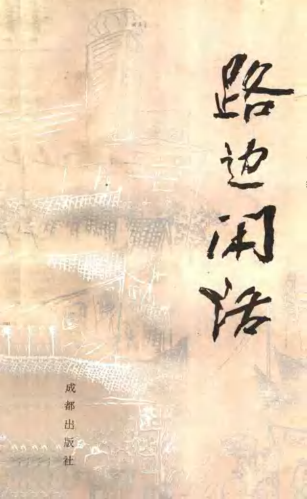 路边闲话
成都出版社